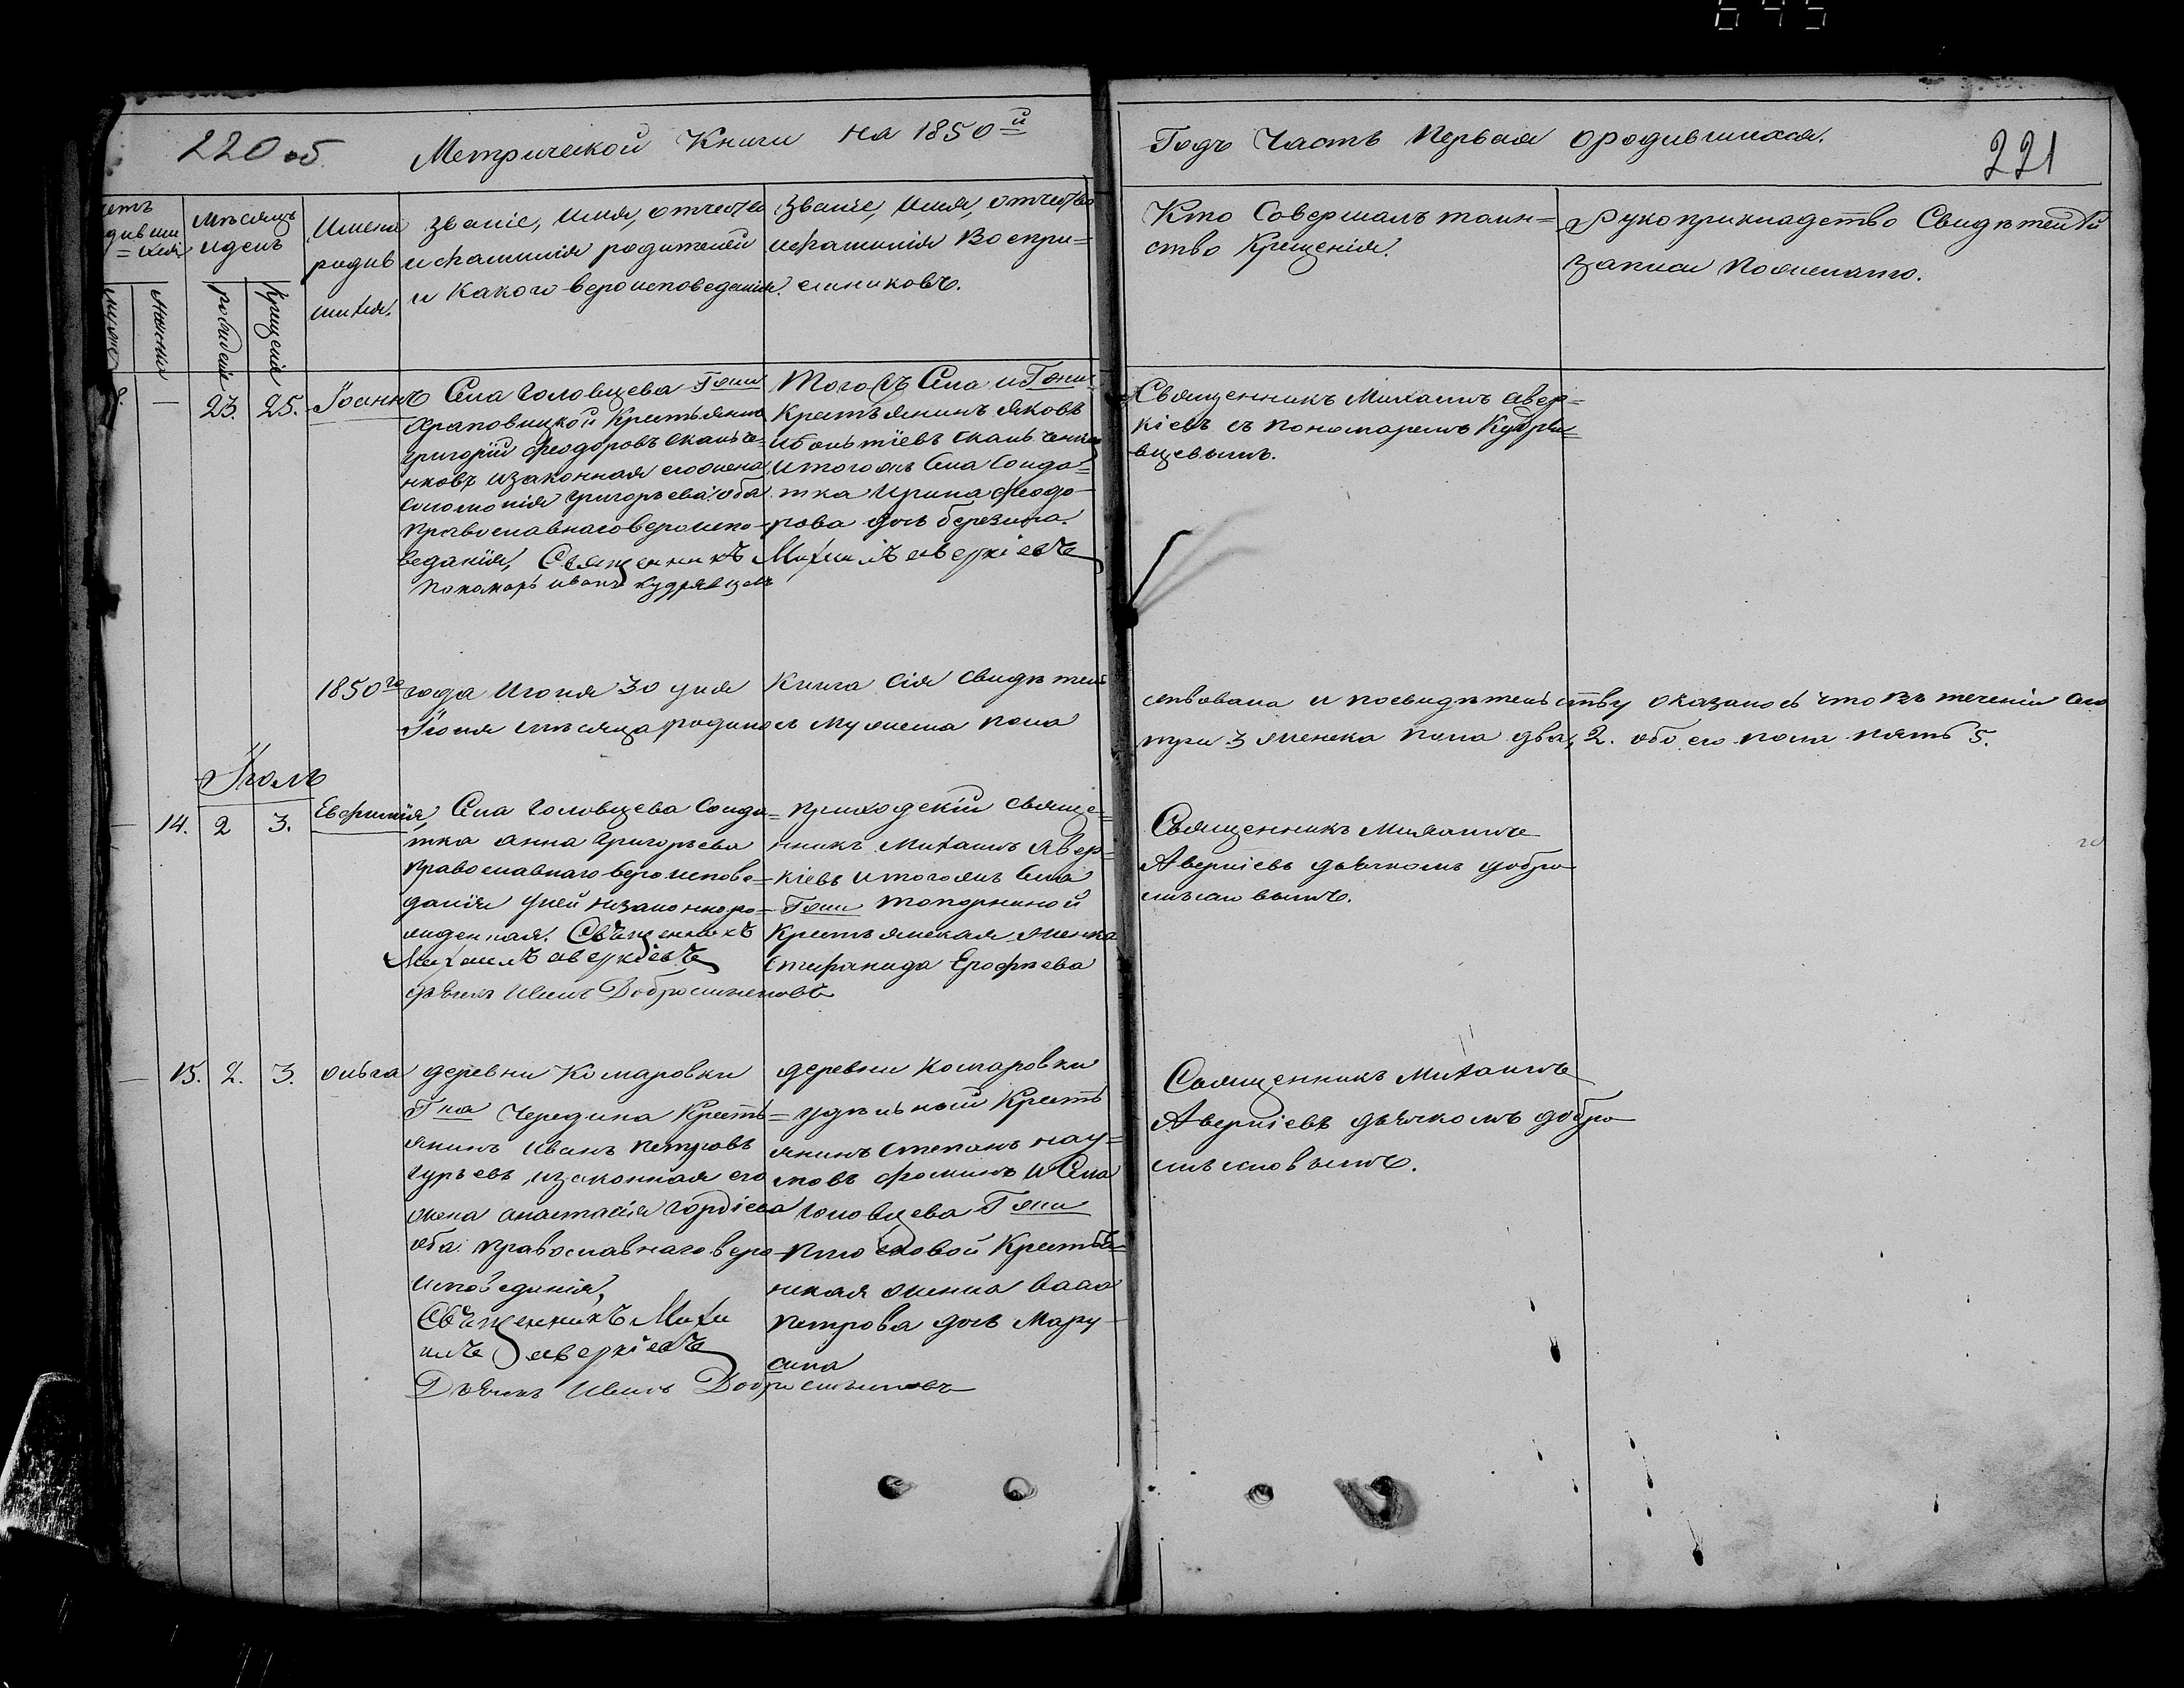 645
220 об
Метрической Книги на 1850й
Годъ Часть Первая ородившихся.
221
Мѣсяцъ
иденъ
рождения
Крещенія
Имена
родив
шихся.
званіе, Имя, отчество
ифамилія родителей
и Какого вероисповеданія.
Званіе, Имя, отчество
ифамилія Воспри=
емниковъ.
Кто Совершалъ таин=
ство Крещенія.
Рукоприкладство Свидѣтелей
записи Пожеланію.
— 23. 25. Іоаннъ
Села Головцева Гжи
Храповицкой Крестьянинъ
Григорій Феодоровъ
нковъ изаконная егожена
Соломонія Григорьева оба
Православнаго Вероиспо-
веданія, Священникъ Михаилъ аверкіевъ
Пономарь иванъ кудрявцевъ
Того жъ Села и Гжи
Крестьянинъ Яковъ
итогожъ Села Солда=
тка Ирина Феодо-
рова дочь березина.
Священникъ Михаилъ авер=
кіевъ съ пономаремъ Кудря=
вцевымъ.
1850го года Июня 30 дня Книга Сія свидѣтель
ствована и посвидѣтельству оказалось что въ теченіи
Іюня мѣсяца родилось мужеска пола
три 3 женска пола два, 2. обоего пола пять 5.
Іюль
— 14. 2 3. Евфимія,
Села Головцева Солда=
тка Анна Григорьева
православнаго вероиспове=
данія уней незаконноро=
жденная. Священникъ
Михаилъ аверкіевъ
дьячекъ Иванъ Добросмысловъ
Приходскій Свяще=
нникъ Михаилъ Авер=
кіевъ итогожъ Села
Гжи Топорниной
Крестьянская женка
Стефанида Ерофеева
Священникъ Михаилъ
Аверкіевъ дьячкомъ добро
смысловымъ.
— 15. 2. 3. ольга
деревни Комаровки
Гна Чередина Кресть=
янинъ Иванъ Петровъ
Гурьевъ, изаконная его
жена анастасія Гордіева
оба православнаго веро-
исповеданія,
Священникъ Миха
илъ аверкіевъ
Дьячекъ Иванъ Добросмысловъ
деревни Комаровки
удѣльной Кресть
янинъ Степанъ нау=
мовъ Фоминъ и Села
Головцева Гжи
Крестья=
нская женка
петрова дочь Мару-
сина
Священникъ Михаилъ
Аверкіевъ дьячкомъ добро
смысловымъ.